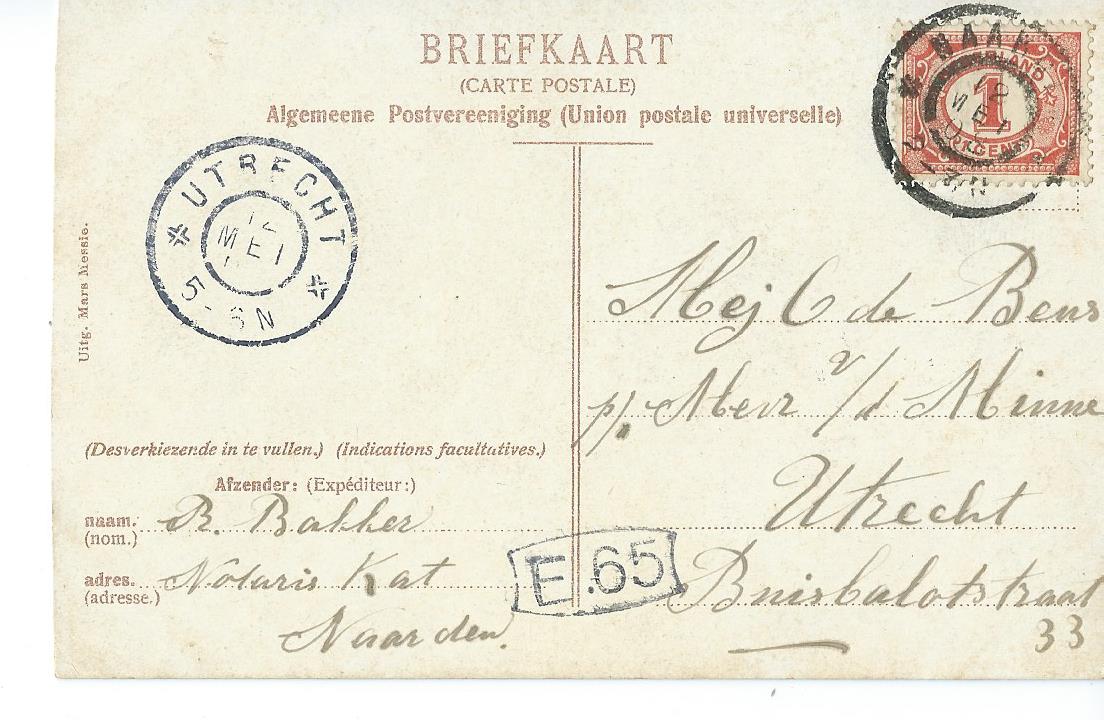 BRIEFKAART
(CARTE POSTALE)
Algemeene Postvereeniging (Union postale universelle)
1
UTRECHT
12
MEI
5-6N
Uitg. Mars Messie.
Mej C de Beus
p/. Mevr v/d Minne
Utrecht
33
(Desverkiezende in te vullen.) (Indications facultatives.)
Afzender: (Expéditeur:)
naam. R. Bakker
(nom.)
adres. Notaris Kat
(adresse.)
Naarden.
E.65